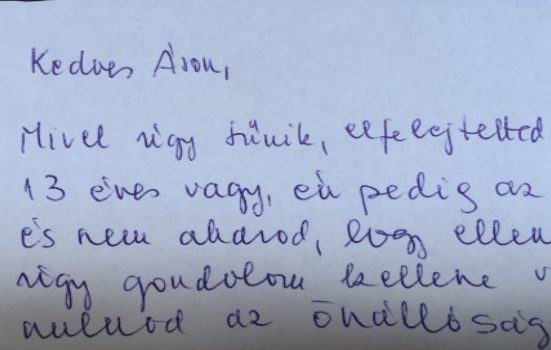 Kedves Áron,
Mivel úgy tűnik, elfelejtetted
13 éves vagy, én pedig az
és nem akarod, hogy ellen
úgy gondolom kellene
az önállóság